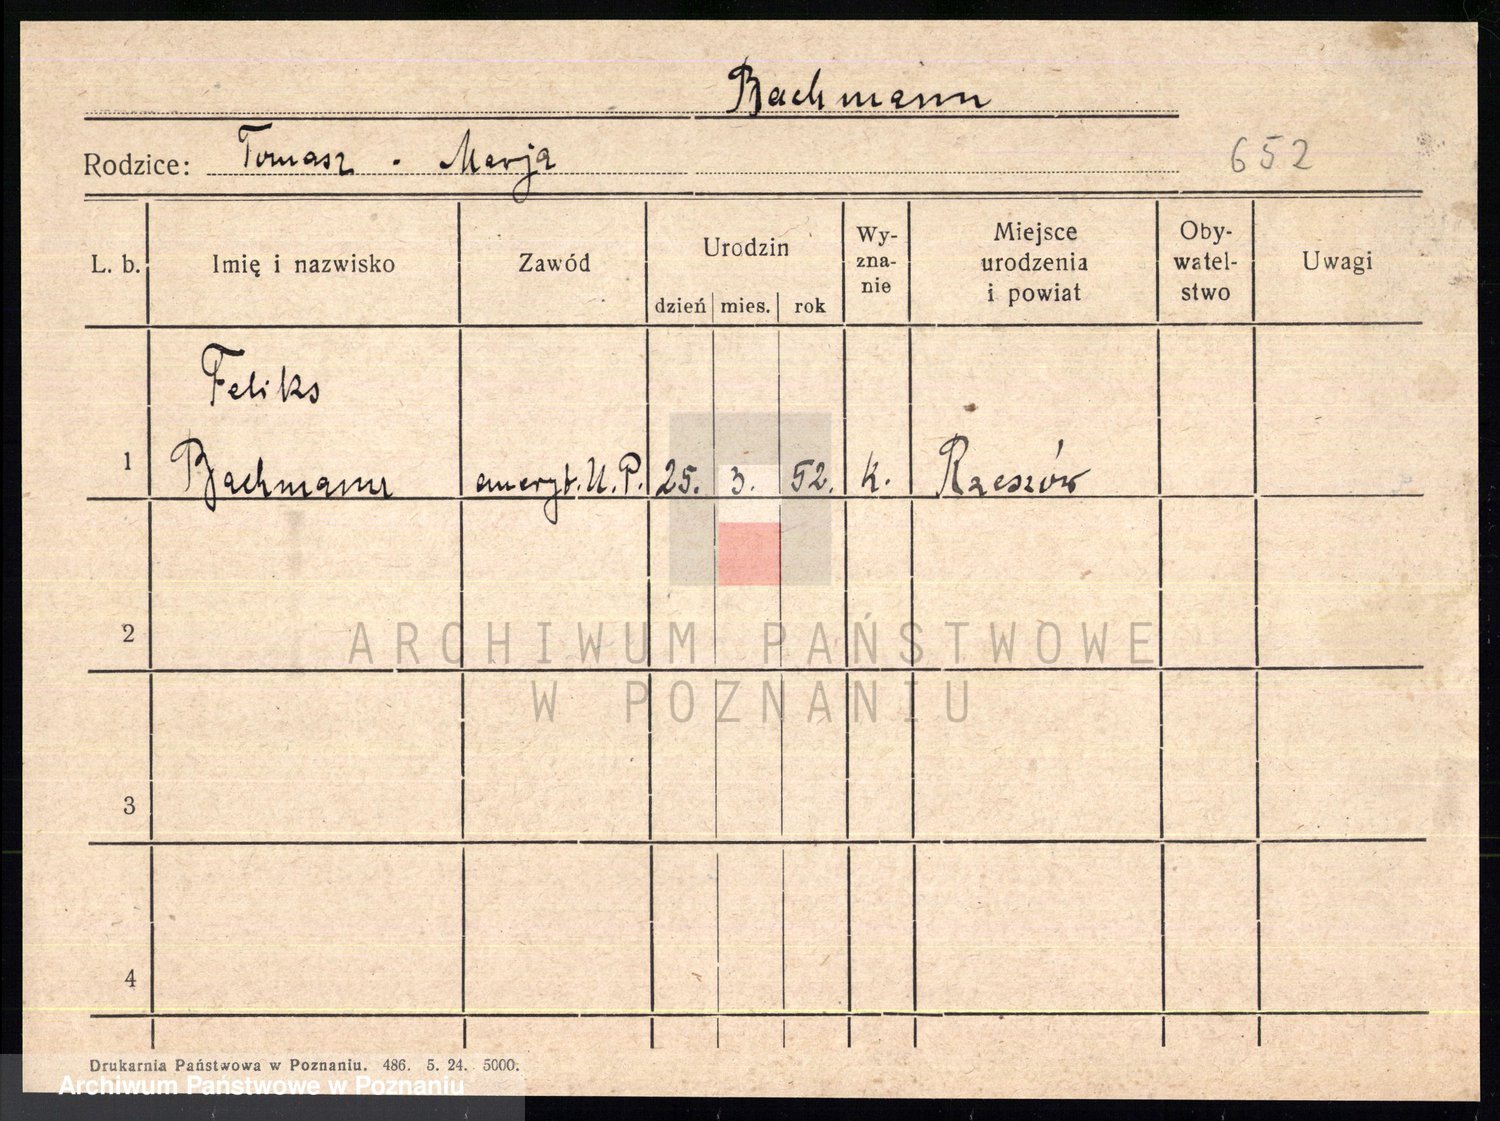 Bachmann
Rodzice: Tomasz - Marja
652
L. b.
Imię i nazwisko
Zawód
Urodzin
dzień mies. rok
Wy-
zna-
nie
Miejsce
urodzenia
i powiat
Oby-
watel-
stwo
Uwagi
Feliks
1 Bachmann emeryt. U. P. 25. 3. 52. k. Rzeszów
2
3
4
ARCHIWUM PAŃSTWOWE
W POZNANIU
Drukarnia Państwowa w Poznaniu. 486. 5. 24. 5000.
Archiwum Państwowe w Poznaniu